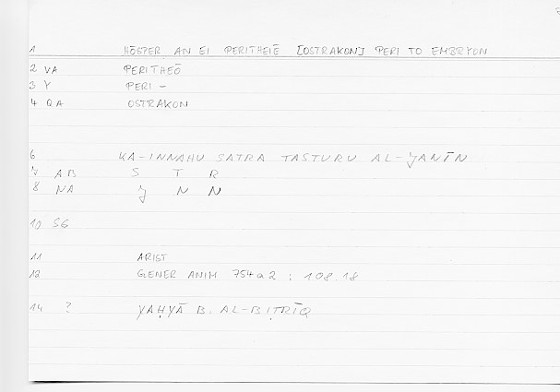 1 HŌSPER AN EI PERITHEIĒ [OSTRAKON] PERI TO EMBRYON
2 VA PERITHEŌ
3 Y PERI -
4 QA OSTRAKON
6 KA-INNAHU SATRA TASTURU AL-ǦANĪN
7 AB S T R
8 NA Ǧ N N
10 SG
11 ARIST
12 GENER ANIM 754a2 : 108.18
14 ? YAḤYĀ B. AL-BIṬRĪQ